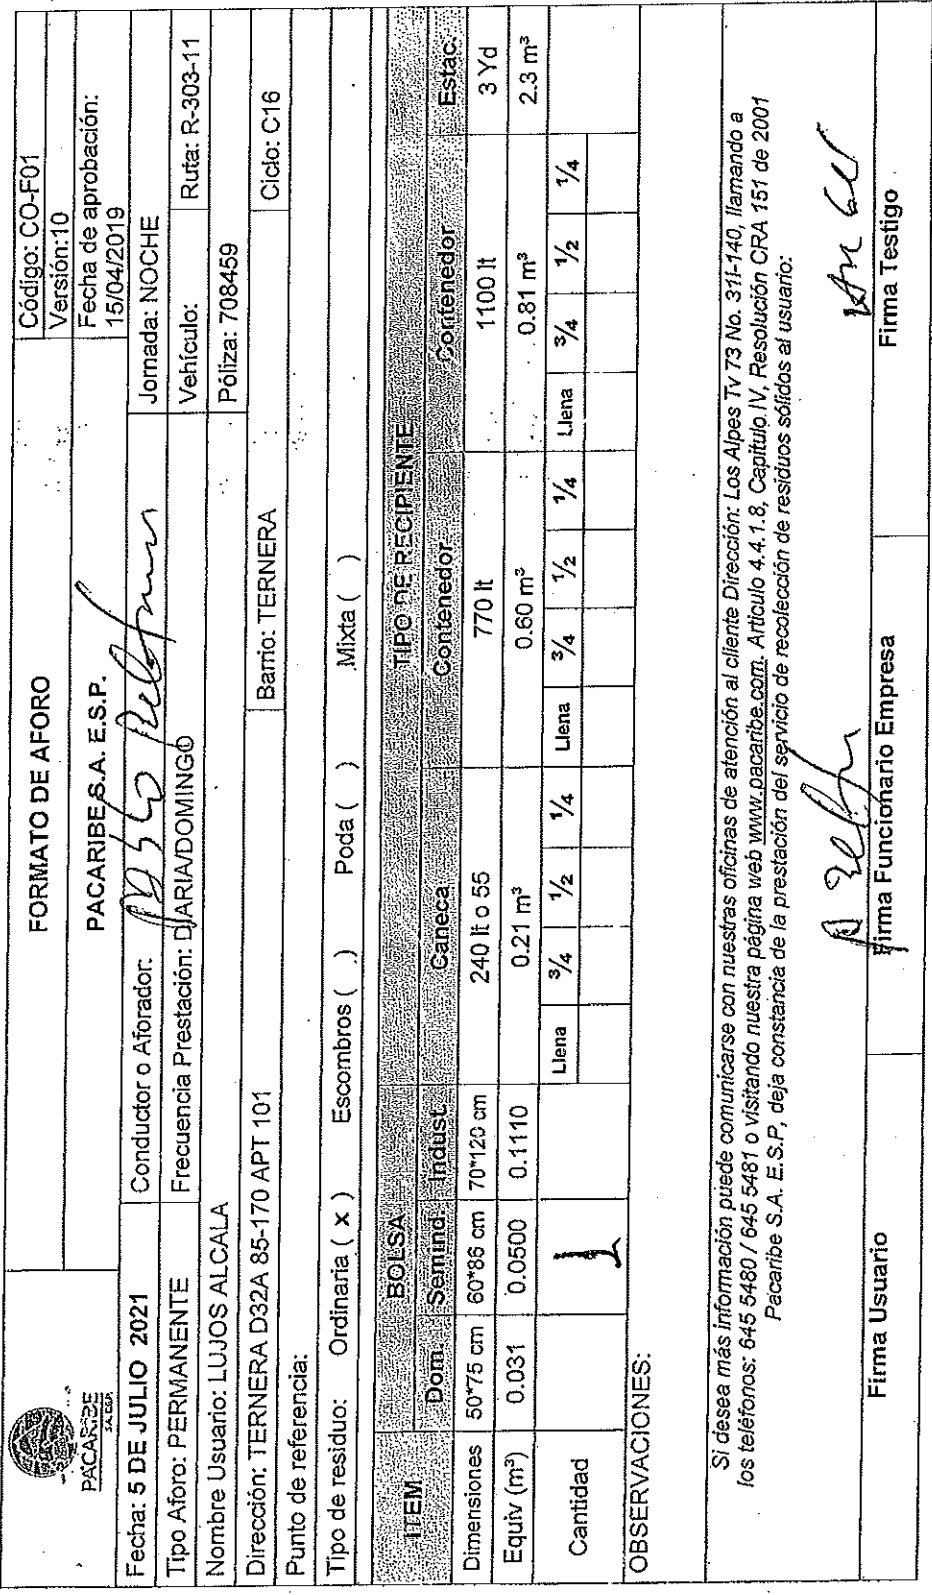 PACARIBE
S.A. E.S.P.
FORMATO DE AFORO
PACARIBE S.A. E.S.P.
Código: CO-F01
Versión:10
Fecha de aprobación:
15/04/2019
Fecha: 5 DE JULIO 2021
Conductor o Aforador:
Jornada: NOCHE
Tipo Aforo: PERMANENTE
Frecuencia Prestación: DIARIA/DOMINGO
Vehículo:
Ruta: R-303-11
Nombre Usuario: LUJOS ALCALA
Póliza: 708459
Dirección: TERNERA D32A 85-170 APT 101
Barrio: TERNERA
Ciclo: C16
Punto de referencia:
Tipo de residuo: Ordinaria ( x ) Escombros ( ) Poda ( ) Mixta ( )
ITEM BOLSA TIPO DE RECIPIENTE
Dom. Semind. Indust. Caneca Contenedor Contenedor Estac.
Dimensiones 50*75 cm 60*86 cm 70*120 cm 240 lt o 55 770 lt 1100 lt 3 Yd
Equiv (m³) 0.031 0.0500 0.1110 0.21 m³ 0.60 m³ 0.81 m³ 2.3 m³
Cantidad 1 Llena 3/4 1/2 1/4 Llena 3/4 1/2 1/4 Llena 3/4 1/2 1/4
OBSERVACIONES:
Si desea más información puede comunicarse con nuestras oficinas de atención al cliente Dirección: Los Alpes Tv 73 No. 31I-140, llamando a
los teléfonos: 645 5480 / 645 5481 o visitando nuestra página web www.pacaribe.com. Articulo 4.4.1.8, Capitulo IV, Resolución CRA 151 de 2001
Pacaribe S.A. E.S.P, deja constancia de la prestación del servicio de recolección de residuos sólidos al usuario:
Firma Usuario
Firma Funcionario Empresa
Firma Testigo